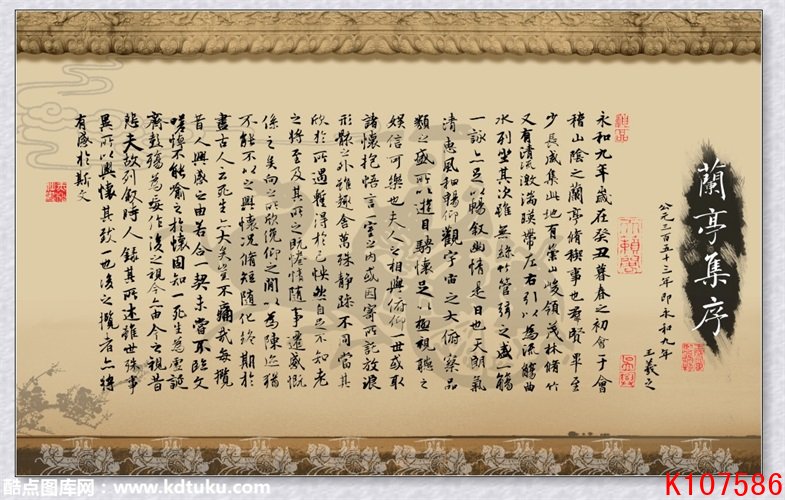 蘭亭集序
公元三百五十三年即永和九年
王羲之
永和九年歲在癸丑暮春之初會于會
稽山陰之蘭亭脩稧事也羣賢畢至
少長咸集此地有崇山峻領茂林脩竹
又有清流激湍暎帶左右引以為流觴曲
水列坐其次雖無絲竹管弦之盛一觴
一詠亦足以暢叙幽情是日也天朗氣
清惠風和暢仰觀宇宙之大俯察品
類之盛所以遊目騁懷足以極視聽之
娛信可樂也夫人之相與俯仰一世或取
諸懷抱悟言一室之內或因寄所託放浪
形骸之外雖趣舍萬殊靜躁不同當其
欣於所遇蹔得於己怏然自足不知老
之將至及其所之既惓情隨事遷感慨
係之矣向之所欣俛仰之間以為陳迹猶
不能不以之興懷況脩短隨化終期於
盡古人云死生亦大矣豈不痛哉每攬
昔人興感之由若合一契未嘗不臨文
嗟悼不能喻之於懷固知一死生為虛誕
齊彭殤為妄作後之視今亦由今之視昔
悲夫故列叙時人錄其所述雖世殊事
異所以興懷其致一也後之攬者亦將
有感於斯文
酷点图库网：www.kdtuku.com
K107586